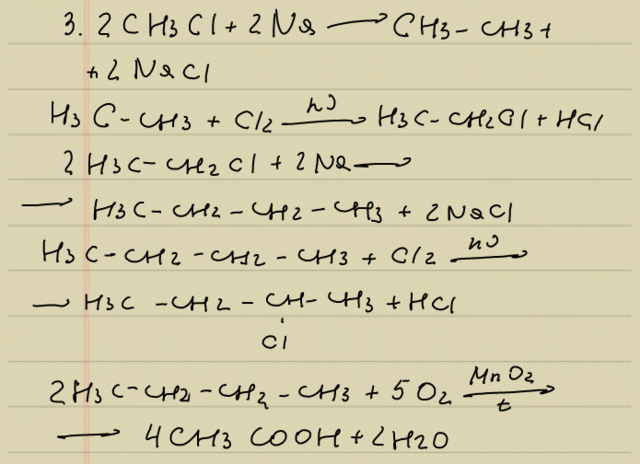 3. 2CH3Cl + 2Na → CH3-CH3+
+2NaCl
H3C-CH3 + Cl2 hν → H3C-CH2Cl + HCl
2H3C-CH2Cl + 2Na →
→ H3C-CH2-CH2-CH3 + 2NaCl
H3C-CH2-CH2-CH3 + Cl2 hν →
→ H3C-CH2-CH-CH3 + HCl
Cl
2H3C-CH2-CH2-CH3 + 5O2 MnO2 → t
→ 4CH3COOH + 2H2O